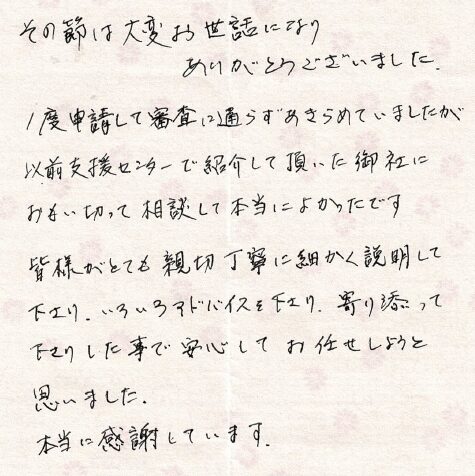 その節は大変お世話になり
ありがとうございました.
1度申請して審査に通らずあきらめていましたが
以前支援センターで紹介して頂いた御社に
おもい切って相談して本当によかったです
皆様がとても親切丁寧に細かく説明して
下さり.いろいろアドバイスを下さり.寄り添って
下さりした事で安心してお任せしようと
思いました.
本当に感謝しています.